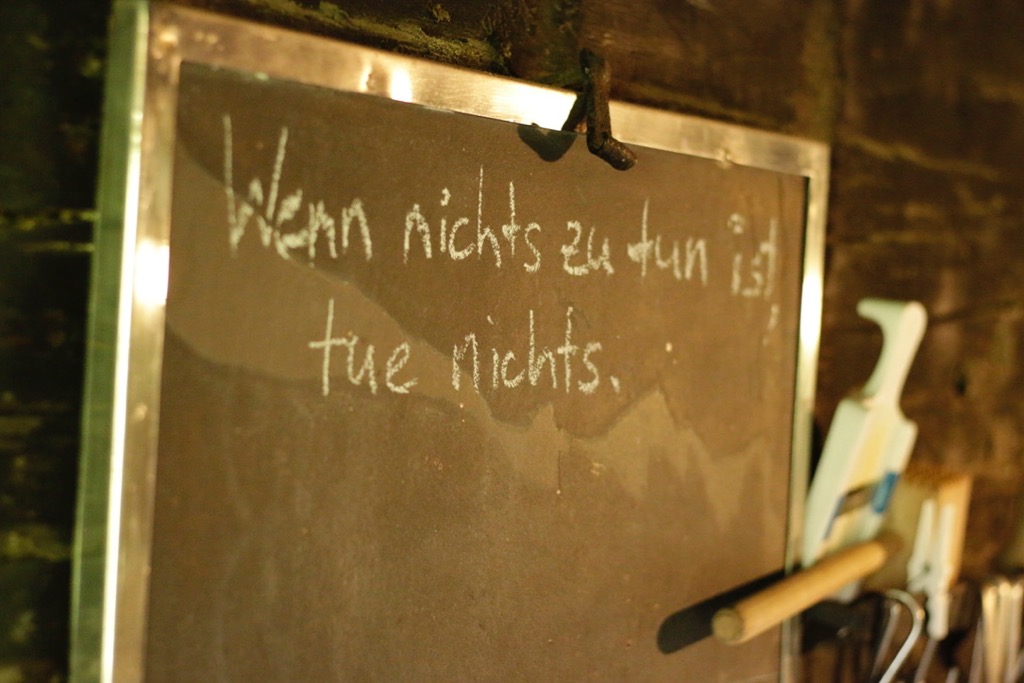 Wenn nichts zu tun ist,
tue nichts.